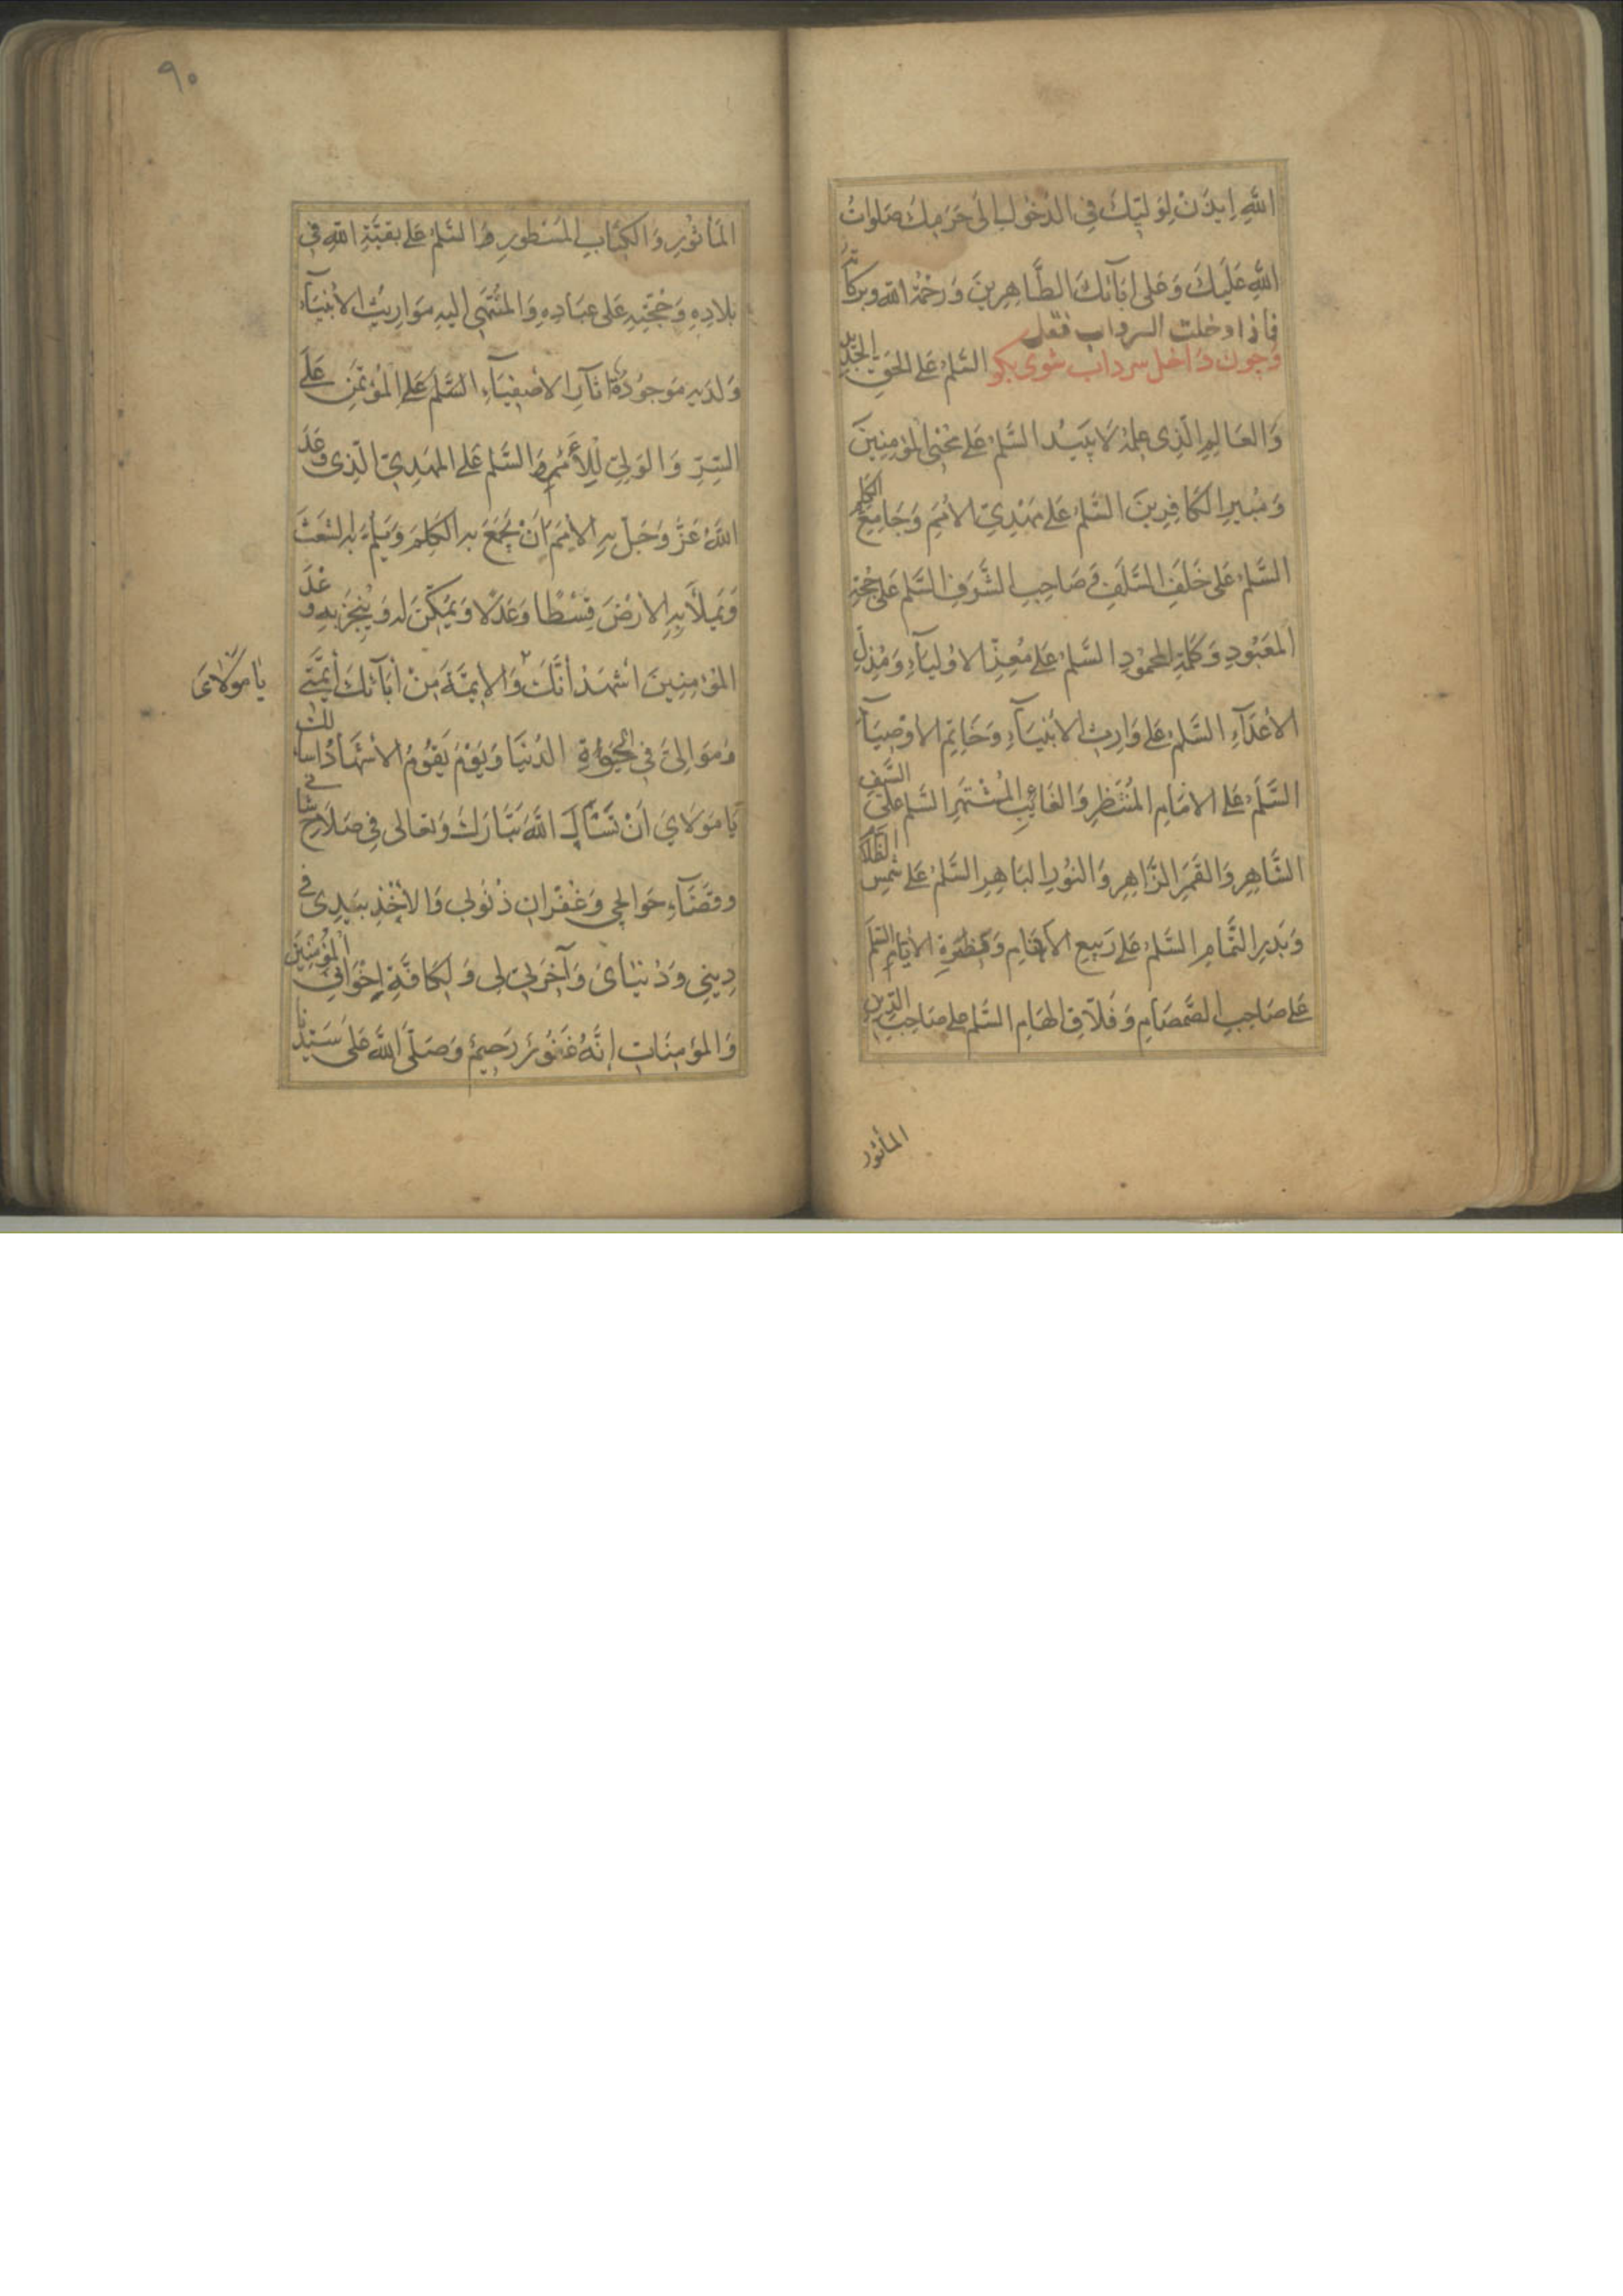 اللَّهِ اِيذَنْ لِوَلِيِّكَ فِي الدُّخُولِ اِلَى حَرَمِكَ صَلَوَاتُ
اللَّهِ عَلَيْكَ وَعَلَى اٰبَآئِكَ الطَّاهِرِينَ وَرَحْمَةُ اللّٰهِ وَبَرَكَاتُهُ
فاذا دخلت السرداب فقل
وچون داخل سرداب شوی بگو السَّلَمُ عَلَى الْحَقِّ الْجَدِيدِ
وَالْعَالِمِ الَّذِى عِلْمُهُ لَا يَبِيدُ السَّلَمُ عَلَى مُحْيِى الْمُؤْمِنِينَ
وَمُبِيرِ الْكَافِرِينَ السَّلَمُ عَلَى مَهْدِيِّ الْاُمَمِ وَجَامِعِ الْكَلِمِ
السَّلَمُ عَلَى خَلَفِ السَّلَفِ وَصَاحِبِ الشَّرَفِ السَّلَمُ عَلَى حُجَّةِ
الْمَعْبُودِ وَكَلِمَةِ الْمَحْمُودِ السَّلَمُ عَلَى مُعِزِّ الْاَوْلِيَآءِ وَمُذِلِّ
الْاَعْدَآءِ السَّلَمُ عَلَى وَارِثِ الْاَنْبِيَآءِ وَخَاتِمِ الْاَوْصِيَآءِ
السَّلَمُ عَلَى الْاِمَامِ الْمُنْتَظَرِ وَالْغَائِبِ الْمُشْتَهَرِ السَّلَمُ عَلَى السَّيْفِ
الشَّاهِرِ وَالْقَمَرِ الزَّاهِرِ وَالنُّورِ الْبَاهِرِ السَّلَمُ عَلَى شَمْسِ الظَّلَامِ
وَبَدْرِ التَّمَامِ السَّلَمُ عَلَى رَبِيعِ الْاَيْتَامِ وَنَضْرَةِ الْاَيَّامِ السَّلَمُ
عَلَى صَاحِبِ الصَّمْصَامِ وَفَلَّاقِ الْهَامِ السَّلَمُ عَلَى صَاحِبِ الدِّينِ
المأثور
٩٠
الْمَأْثُورِ وَالْكِتَابِ الْمَسْطُورِ وَالسَّلَمُ عَلَى بَقِيَّةِ اللّٰهِ فِى
بِلَادِهِ وَحُجَّتِهِ عَلَى عِبَادِهِ وَالْمُنْتَهَى اِلَيْهِ مَوَارِيثُ الْاَنْبِيَآءِ
وَلَدَيْهِ مَوْجُودَةٌ اٰثَارُ الْاَصْفِيَآءِ السَّلَمُ عَلَى الْمُؤْتَمَنِ عَلَى
السِّرِّ وَالْوَلِيِّ لِلْأَمْرِ وَالسَّلَمُ عَلَى الْمَهْدِيِّ الَّذِى وَعَدَ
اللَّهُ عَزَّ وَجَلَّ بِهِ الْاُمَمَ اَنْ يَجْمَعَ بِهِ الْكَلِمَ وَيَلُمَّ بِهِ الشَّعَثَ
وَيَمْلَأَ بِهِ الْاَرْضَ قِسْطًا وَعَدْلًا وَيُمَكِّنَ لَهُ وَيُنْجِزَ بِهِ وَعْدَ
الْمُؤْمِنِينَ اَشْهَدُ أَنَّكَ وَالْاَئِمَّةَ مِنْ اٰبَآئِكَ أَئِمَّتِى
يَا مَوْلَاىَ
وَمَوَالِىَّ فِى الْحَيٰوةِ الدُّنْيَا وَيَوْمَ يَقُومُ الْاَشْهَادُ اَسْاَلُكَ
يَا مَوْلَايَ اَنْ تَسْأَلَ اللَّهَ تَبَارَكَ وَتَعَالَى فِى صَلَاحِ شَأْنِى
وَقَضَآءِ حَوَائِجِى وَغُفْرَانِ ذُنُوبِى وَالْاَخْذِ بِيَدِى فِى
دِينِى وَدُنْيَاىَ وَآخِرَتِى لِى وَلِكَافَّةِ اِخْوَانِىَ الْمُؤْمِنِينَ
وَالْمُؤْمِنَاتِ اِنَّهُ غَفُورٌ رَحِيمٌ وَصَلَّى اللّٰهُ عَلَى سَيِّدِنَا